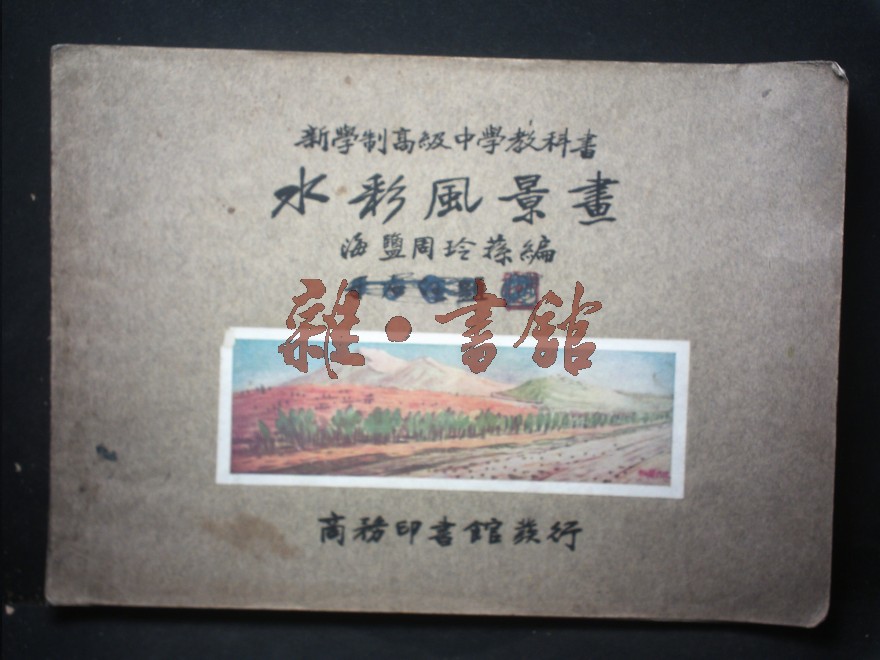 新學制高級中學教科書
水彩風景畫
海鹽周玲蓀編
雜·書館
商務印書館發行